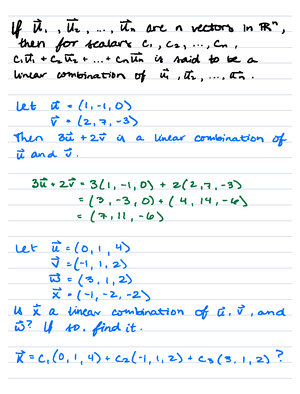 If u⃗₁, u⃗₂, ..., u⃗ₙ are n vectors in ℝⁿ,
then for scalars c₁, c₂, ..., cₙ,
c₁u⃗₁ + c₂u⃗₂ + ... + cₙu⃗ₙ is said to be a
linear combination of u⃗₁, u⃗₂, ..., u⃗ₙ.
Let u⃗ = (1, -1, 0)
v⃗ = (2, 7, -3)
Then 3u⃗ + 2v⃗ is a linear combination of
u⃗ and v⃗.
3u⃗ + 2v⃗ = 3(1, -1, 0) + 2(2, 7, -3)
= (3, -3, 0) + (4, 14, -6)
= (7, 11, -6)
Let u⃗ = (0, 1, 4)
v⃗ = (-1, 1, 2)
w⃗ = (3, 1, 2)
x⃗ = (-1, -2, -2)
Is x⃗ a linear combination of u⃗, v⃗, and
w⃗? If so, find it.
x⃗ = c₁(0, 1, 4) + c₂(-1, 1, 2) + c₃(3, 1, 2) ?